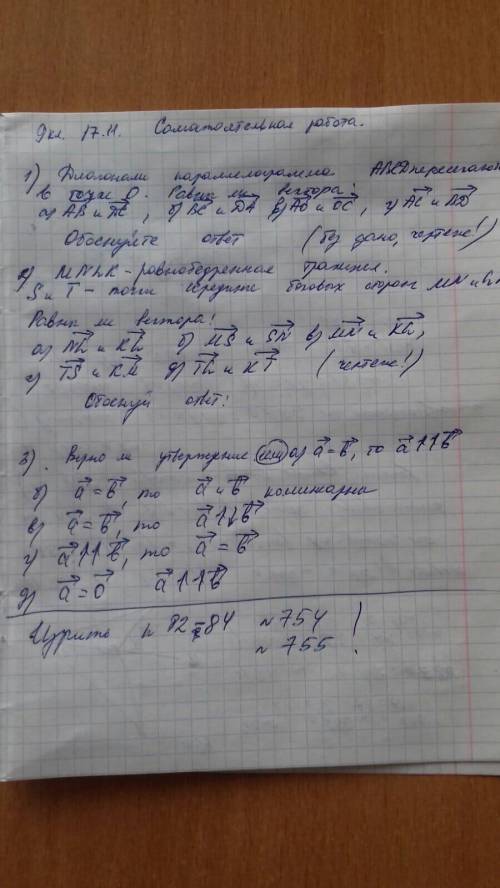 9кл. 17.11. Самостоятельная работа.
1) Диагонали параллелограмма ABCD пересекают
в точке O. Равны ли вектора:
а) AB и DC, б) BC и DA в) AO и OC, г) AC и BD
Обоснуйте ответ (без дано, чертеж!)
2) MNLK - равнобедренная трапеция.
S и T - точки середины боковых сторон MN и
Равны ли вектора!
а) NL и KL б) MS и SN в) MN и KL,
г) TS и KM д) TL и KT (чертеж!)
Обоснуй ответ!
3). Верно ли утверждение если а) a = b, то a↑↑b
б) a = b, то a и b коллинеарны
в) a = b, то a↑↓b
г) a↑↑b, то a = b
д) a = 0 a↑↑b
п 82 84 №754 !
№755